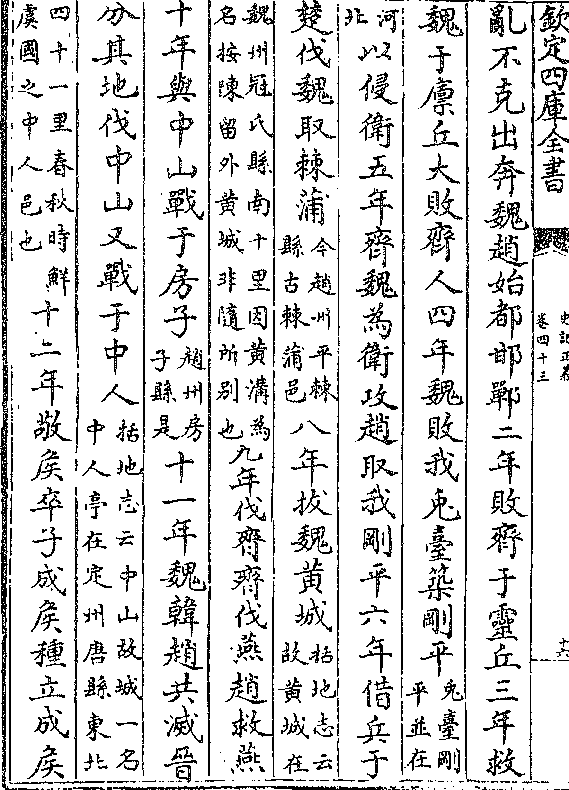 欽定四庫全書
史記正義
卷四十三
十六
亂不克出奔魏趙始都邯鄲二年敗齊于靈丘三年救
魏于廪丘大敗齊人四年魏敗我兎臺築剛平兎臺剛平並在
河北以侵衛五年齊魏為衛攻趙取我剛平六年借兵于
楚伐魏取棘蒲今趙州平棘縣古棘蒲邑八年拔魏黄城括地志云故黄城在
魏州冠氏縣南十里因黄溝為名按陳留外黄城非隨所别也九年伐齊齊伐燕趙救燕
十年與中山戰于房子趙州房子縣是十一年魏韓趙共滅晉
分其地伐中山又戰于中人括地志云中山故城一名中人亭在定州唐縣東北
四十一里春秋時鮮虞國之中人邑也十二年敬侯卒子成侯種立成侯